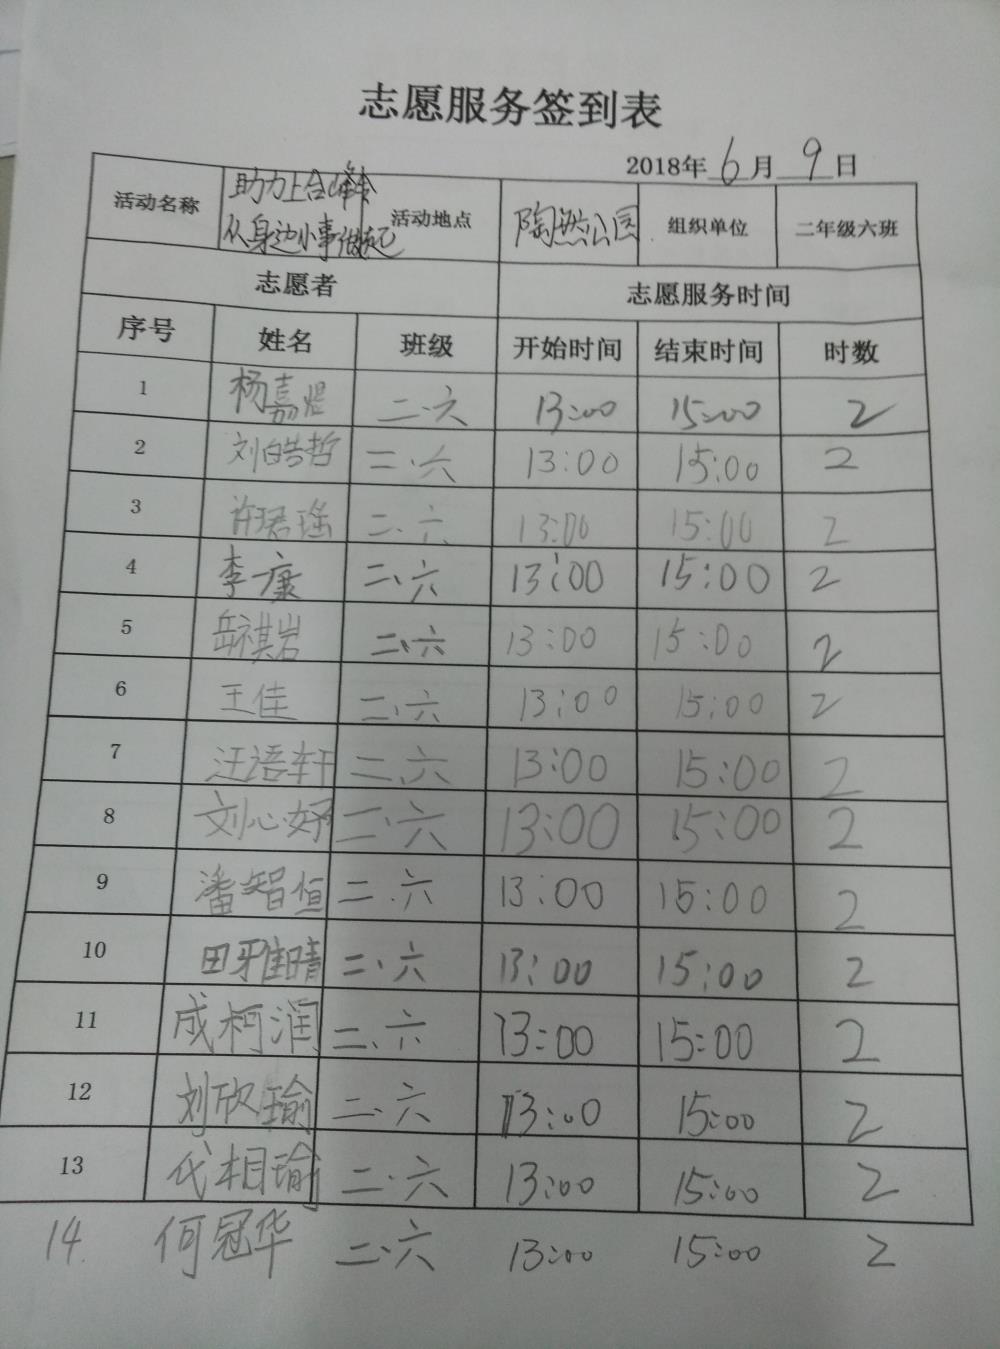 志愿服务签到表
2018年 6 月 9 日
活动名称 助力上合峰会 从身边小事做起 活动地点 陶然公园 组织单位 二年级六班
志愿者 志愿服务时间
序号 姓名 班级 开始时间 结束时间 时数
1 杨嘉煜 二·六 13:00 15:00 2
2 刘皓哲 二·六 13:00 15:00 2
3 许珺瑶 二·六 13:00 15:00 2
4 李康 二、六 13:00 15:00 2
5 岳祺岩 二·六 13:00 15:00 2
6 王佳 二、六 13:00 15:00 2
7 汪语轩 二、六 13:00 15:00 2
8 刘心妤 二·六 13:00 15:00 2
9 潘智恒 二·六 13:00 15:00 2
10 田雅晴 二·六 13:00 15:00 2
11 成柯润 二、六 13:00 15:00 2
12 刘欣瑜 二·六 13:00 15:00 2
13 代相瑜 二·六 13:00 15:00 2
14. 何冠华 二·六 13:00 15:00 2